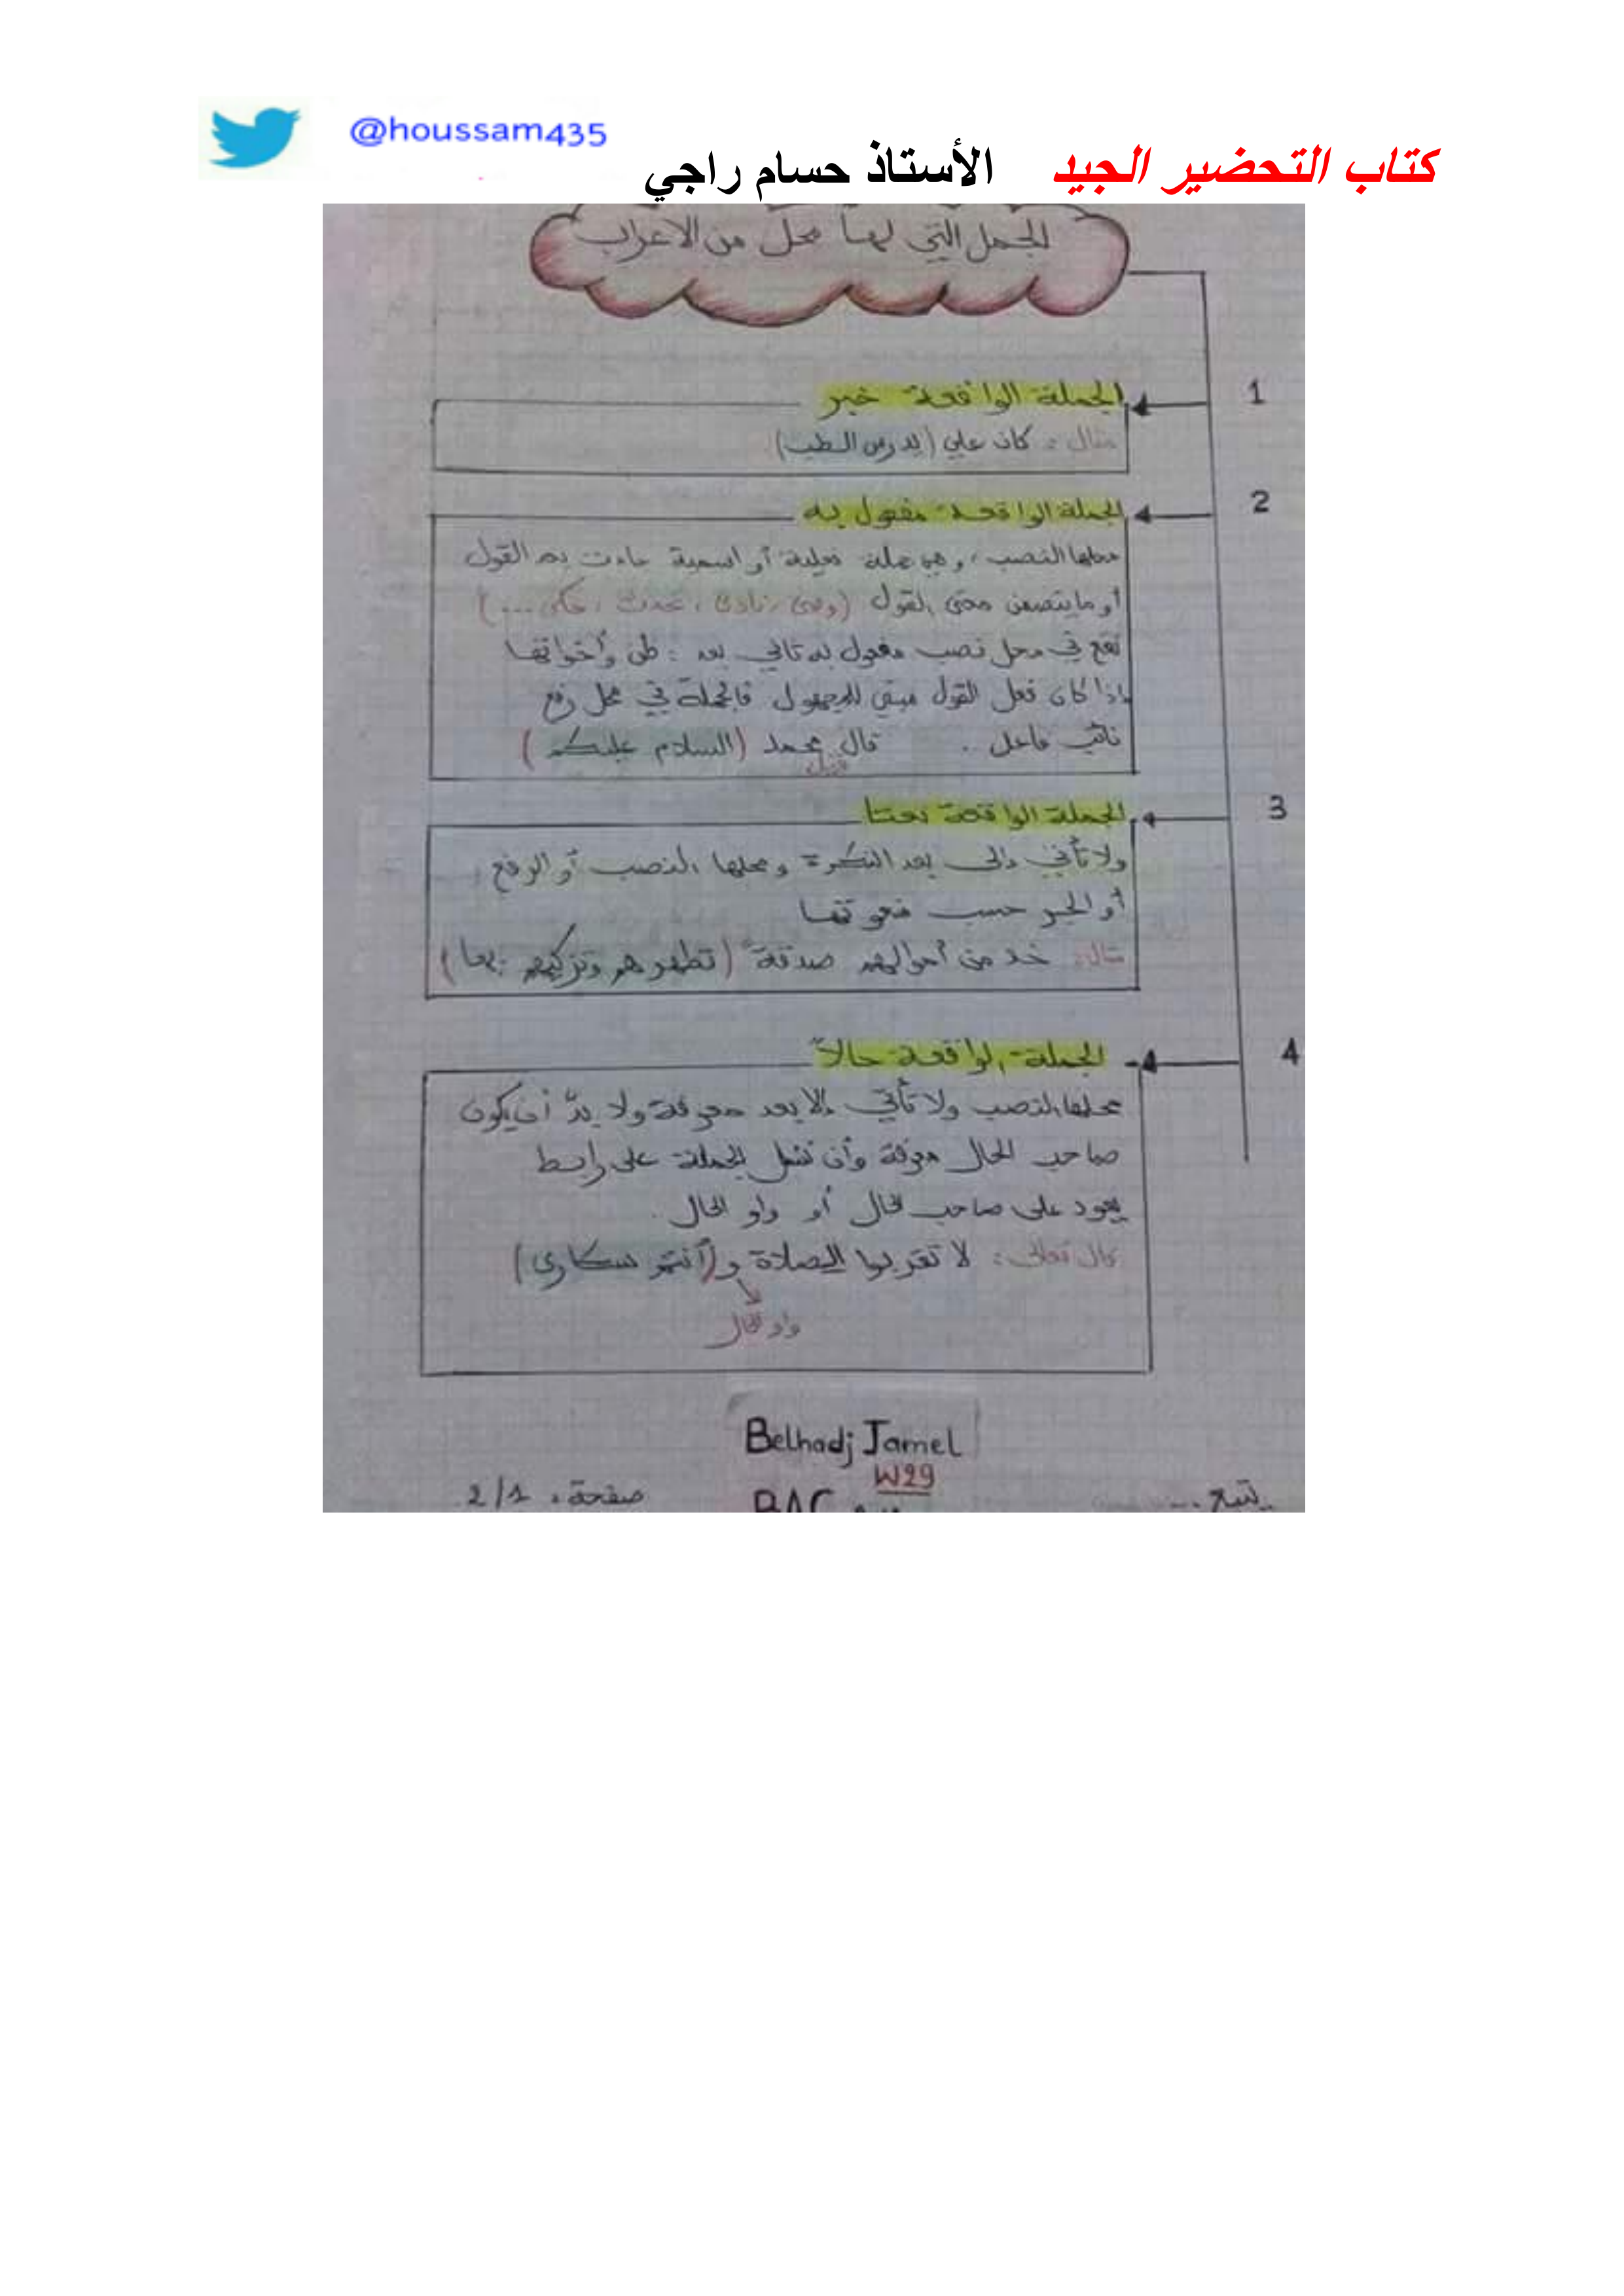 @houssam435
كتاب التحضير الجيد الأستاذ حسام راجي
الجمل التي لها محل من الاعراب
1
الجملة الواقعة خبر
مثال : كان علي (يدرس الطب)
2
الجملة الواقعة مفعول به
محلها النصب ، وهي جملة فعلية أو اسمية جاءت بعد القول
أو ما يتضمن معنى القول ( ، ، تحدث ، حكى ...)
تقع في محل نصب مفعول به ثاني بعد : ظن وأخواتها
إذا كان فعل القول مبني للمجهول فالجملة في محل رفع
نائب فاعل . قال محمد (السلام عليكم)
3
الجملة الواقعة نعتا
ولا تأتي بعد النكرة ومحلها النصب أو الرفع
أو الجر حسب منعوتها
مثال: خذ من أموالهم صدقة (تطهرهم وتزكيهم بها)
4
الجملة الواقعة حالا
محلها النصب ولا تأتي إلا بعد معرفة ولا بدّ أن يكون
صاحب الحال معرفة وأن الجملة على رابط
يعود على صاحب الحال أو واو الحال .
قال تعالى : لا تقربوا الصلاة و(أنتم سكارى)
واو الحال
Belhadj Jamel
W29
يتبع . صفحة : 2/1
BAC